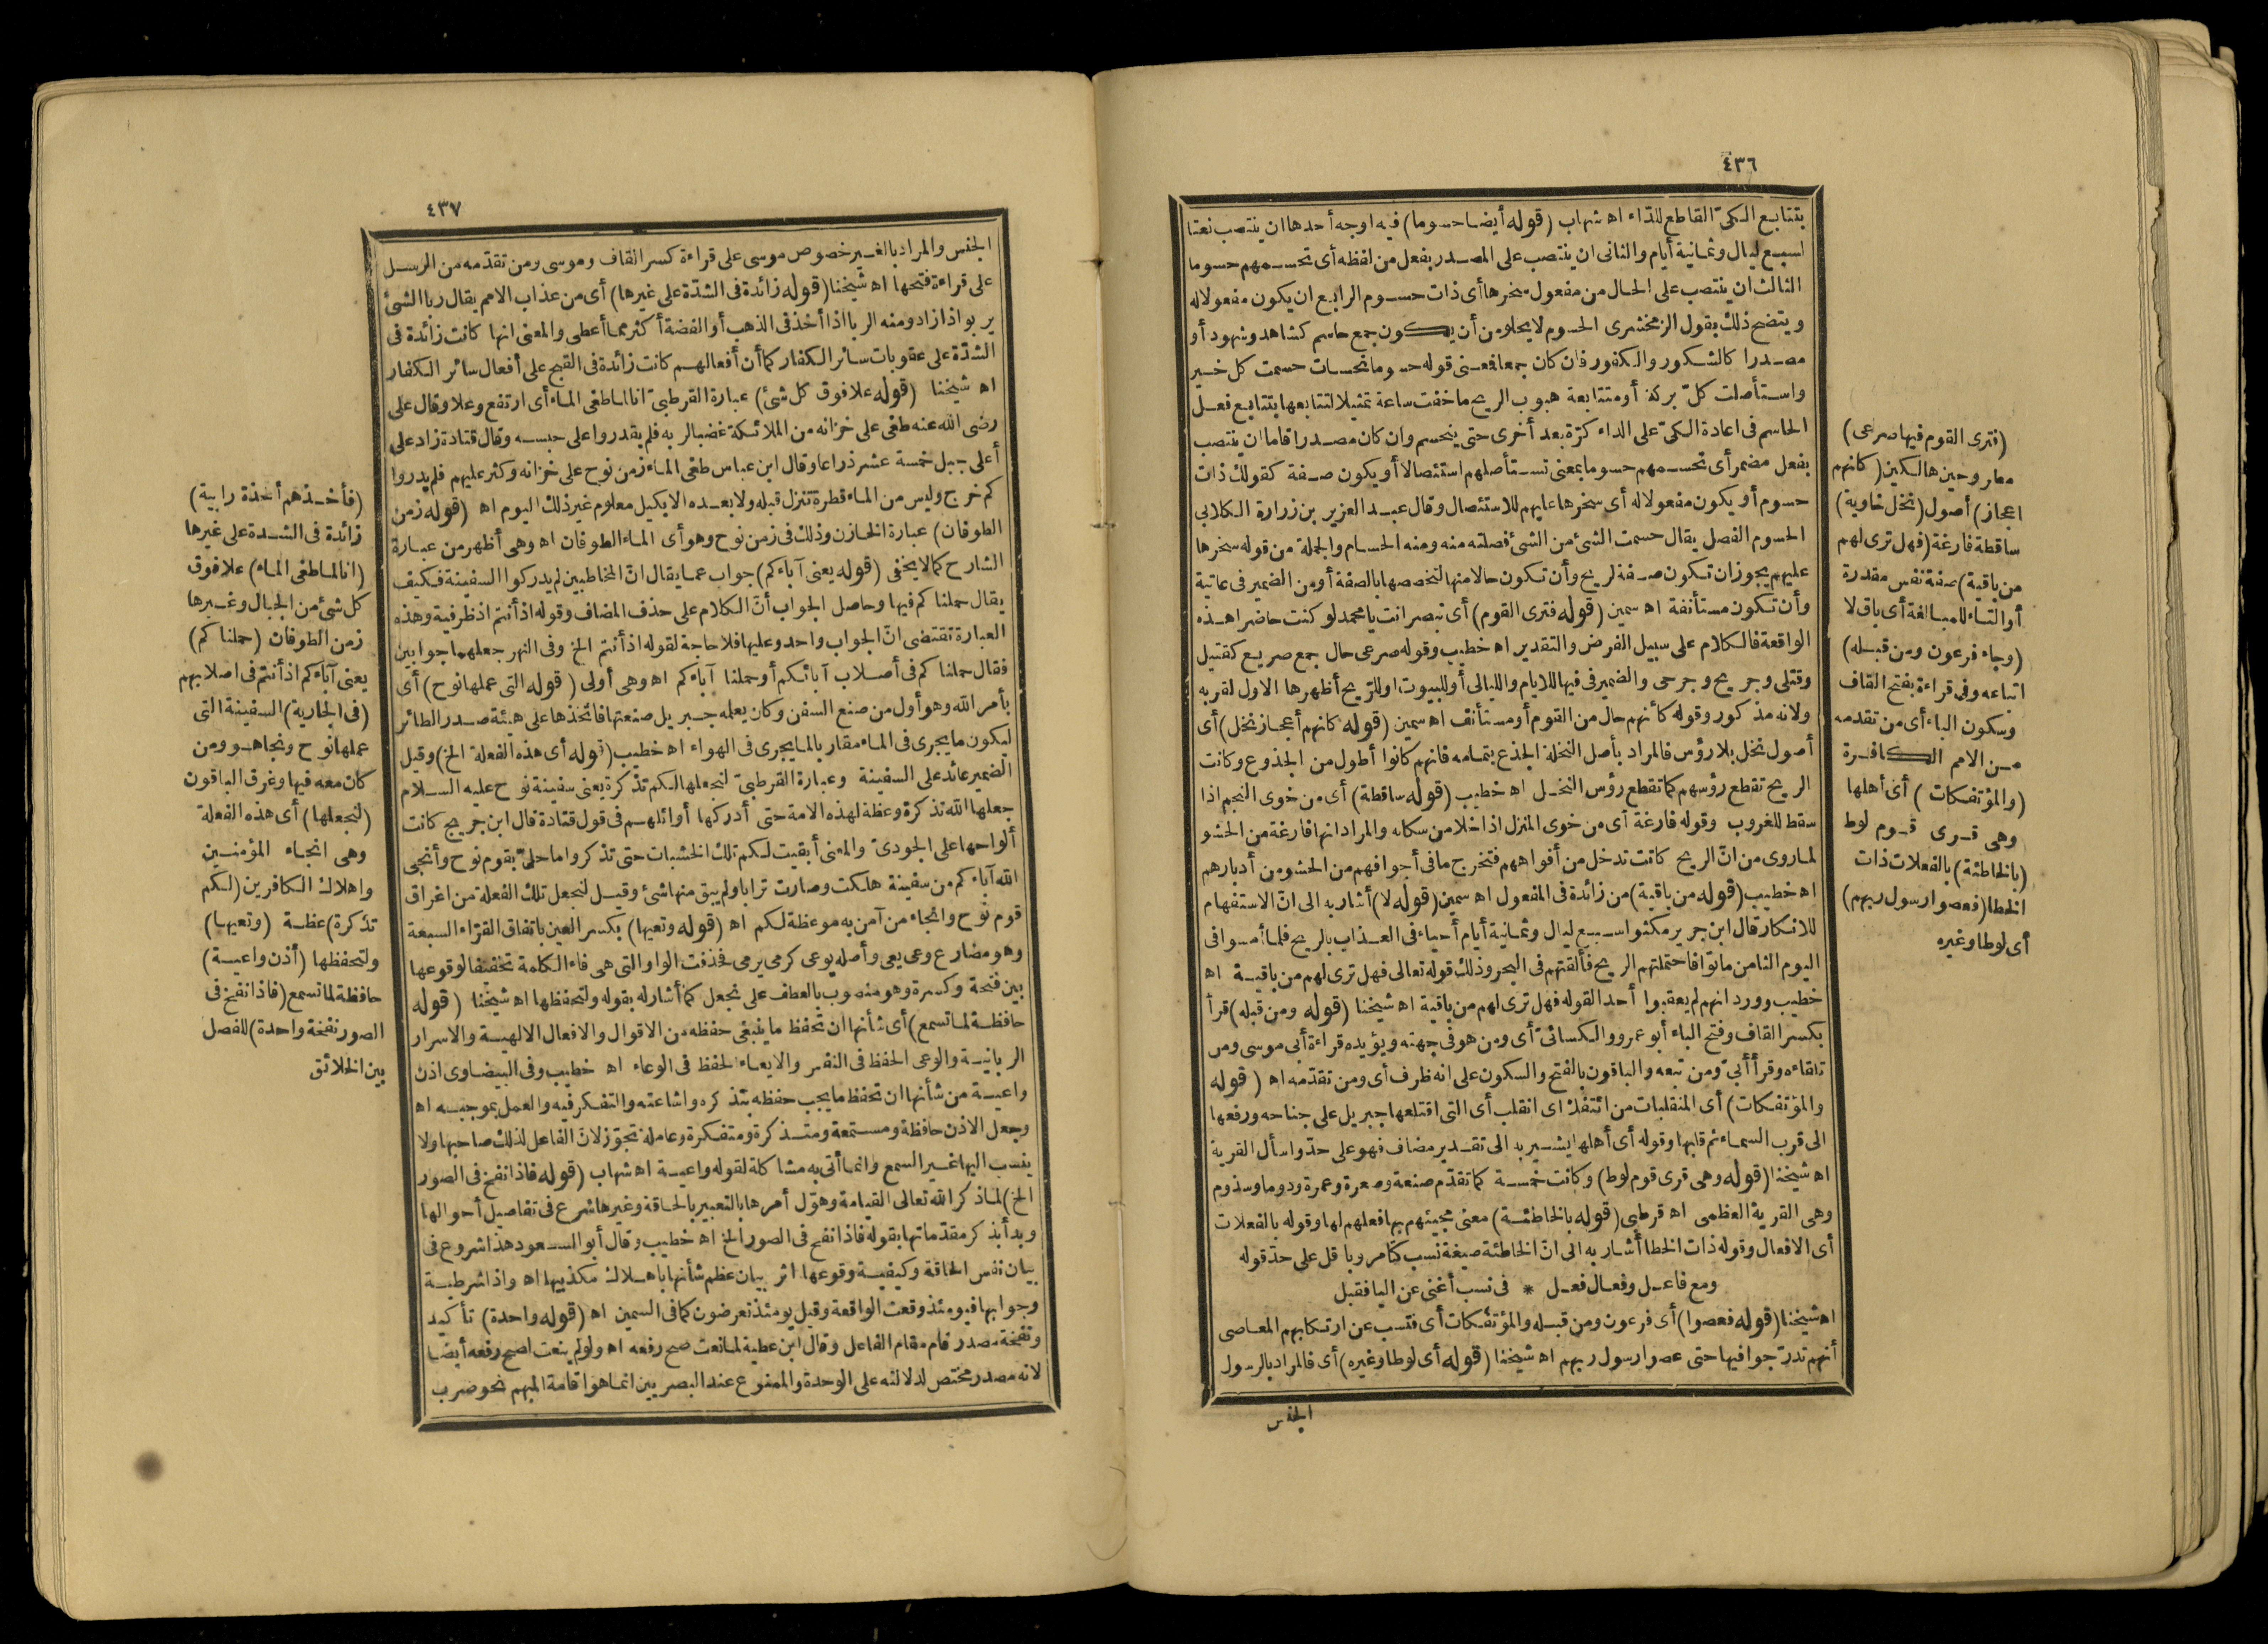 ٤٣٦
بتتابع الكىّ القاطع للداء اه شهاب (قوله أيضا حسوما) فيه اوجه أحدها ان ينتصب نعتا
لسبع ليال وثمانية أيام والثانى ان ينتصب على المصدر بفعل من لفظه أى تحسمهم حسوما
الثالث ان ينتصب على الحال من مفعول سخرها أى ذات حسوم الرابع ان يكون مفعولا له
ويتضح ذلك بقول الزمخشرى الحسوم لا يخلو من أن يكون جمع حاسم كشاهد وشهود أو
مصدرا كالشكور والكفور فان كان جمعا فمعنى قوله حسوما نحسات حسمت كل خير
واستأصلت كلّ بركة أو متتابعة هبوب الريح ما خفت ساعة تمثيلا لتتابعها بتتابع فعل
الحاسم فى اعادة الكىّ على الداء كرّة بعد أخرى حتى ينحسم وان كان مصدرا فاما ان ينتصب
بفعل مضمر أى تحسمهم حسوما بمعنى تستأصلهم استئصالا أو يكون صفة كقولك ذات
حسوم أو يكون مفعولا له أى سخرها عليهم للاستئصال وقال عبد العزيز بن زرارة الكلابى
الحسوم الفصل يقال حسمت الشئ من الشئ فصلته منه ومنه الحسام والجملة من قوله سخرها
عليهم يجوز ان تكون صفة لريح وأن تكون حالا منها لتخصصها بالصفة أو من الضمير فى عاتية
وأن تكون مستأنفة اه سمين (قوله فترى القوم) أى تبصر انت يا محمد لو كنت حاضر اهذه
الواقعة فالكلام على سبيل الفرض والتقدير اه خطيب وقوله صرعى حال جمع صريع كقتيل
وقتلى وجريح وجرحى والضمير فى فيها للايام والليالى أو للبيوت او للرّيح أظهرها الاول لقربه
ولانه مذكور وقوله كأنهم حال من القوم أو مستأنف اه سمين (قوله كانهم أعجاز نخل) أى
أصول نخل بلا رؤس فالمراد بأصل النخلة الجذع بتمامه فانهم كانوا أطول من الجذوع وكانت
الريح تقطع رؤسهم كما تقطع رؤس النخل اه خطيب (قوله ساقطة) أى من خوى النجم اذا
سقط للغروب وقوله فارغة أى من خوى المنزل اذا خلا من سكانه والمراد انها فارغة من الحشو
لما روى من انّ الريح كانت تدخل من أفواههم فتخرج ما فى أجوافهم من الحشو من أدبارهم
اه خطيب (قوله من باقية) من زائدة فى المفعول اه سمين (قوله لا) أشار به الى انّ الاستفهام
للانكار قال ابن جرير مكثوا سبع ليال وثمانية أيام أحياء فى العذاب بالريح فلما أمسوا فى
اليوم الثامن ماتوا فاحتملتهم الريح فألقتهم فى البحر وذلك قوله تعالى فهل ترى لهم من باقية اه
خطيب وورد انهم لم يعقبوا أحد القوله فهل ترى لهم من باقية اه شيخنا (قوله ومن قبله) قرأ
بكسر القاف وفتح الباء أبو عمرو والكسائىّ أى ومن هو فى جهته ويؤيده قراءة أبى موسى ومن
تلقاءه وقرأ أبىّ ومن تبعه والباقون بالفتح والسكون على انه ظرف أى ومن تقدّمه اه (قوله
والمؤتفكات) أى المنقلبات من ائتفك اى انقلب أى التى اقتلعها جبريل على جناحه ورفعها
الى قرب السماء ثم قلبها وقوله أى أهلها يشير به الى تقدير مضاف فهو على حدّ واسأل القرية
اه شيخنا (قوله وهى قرى قوم لوط) وكانت خمسة كما تقدّم صنعة وصعرة وعمرة ودوما وسذوم
وهى القرية العظمى اه قرطبى (قوله بالخاطئة) معنى مجيئهم بها فعلهم لها وقوله بالفعلات
أى الافعال وقوله ذات الخطا أشار به الى انّ الخاطئة صيغة نسب كتامر وباقل على حدّ قوله
ومع فاعل وفعال فعل * فى نسب أغنى عن اليا فقبل
اه شيخنا (قوله فعصوا) أى فرعون ومن قبله والمؤتفكات أى فتسبب عن ارتكابهم المعاصى
أنهم تدرّجوا فيها حتى عصوا رسول ربهم اه شيخنا (قوله أى لوطا وغيره) أى فالمراد بالرسول
الجنس
(فترى القوم فيها صرعى)
مطروحين هالكين (كانهم
اعجاز) أصول (نخل خاوية)
ساقطة فارغة (فهل ترى لهم
من باقية) صفة نفس مقدرة
أو التاء للمبالغة أى باق لا
(وجاء فرعون ومن قبله)
اتباعه وفى قراءة بفتح القاف
وسكون الباء أى من تقدمه
من الامم الكافرة
(والمؤتفكات) أى أهلها
وهى قرى قوم لوط
(بالخاطئة) بالفعلات ذات
الخطا (فعصوا رسول ربهم)
أى لوطا وغيره
٤٣٧
الجنس والمراد بالغير خصوص موسى على قراءة كسر القاف وموسى ومن تقدّمه من الرسل
على قراءة فتحها اه شيخنا (قوله زائدة فى الشدّة على غيرها) أى من عذاب الامم يقال ربا الشئ
يربو اذا زاد ومنه الربا اذا أخذ فى الذهب أو الفضة أكثر مما أعطى والمعنى انها كانت زائدة فى
الشدّة على عقوبات سائر الكفار كما أن أفعالهم كانت زائدة فى القبح على أفعال سائر الكفار
اه شيخنا (قوله علا فوق كل شئ) عبارة القرطبىّ انا لما طغى الماء أى ارتفع وعلا وقال على
رضى الله عنه طغى على خزانه من الملائكة غضبا لربه فلم يقدروا على حبسه وقال قتادة زاد على
أعلى جبل خمسة عشر ذراعا وقال ابن عباس طغى الماء زمن نوح على خزانه وكثر عليهم فلم يدروا
كم خرج وليس من الماء قطرة تنزل قبله ولا بعده الا بكيل معلوم غير ذلك اليوم اه (قوله زمن
الطوفان) عبارة الخازن وذلك فى زمن نوح وهو أى الماء الطوفان اه وهى أظهر من عبارة
الشارح كما لا يخفى (قوله يعنى آباءكم) جواب عما يقال انّ المخاطبين لم يدركوا السفينة فكيف
يقال حملناكم فيها وحاصل الجواب أنّ الكلام على حذف المضاف وقوله اذ أنتم اذ ظرفية وهذه
العبارة تقتضى انّ الجواب واحد وعليها فلا حاجة لقوله اذ أنتم الخ وفى النهر جعلهما جوابين
فقال حملناكم فى أصلاب آبائكم أو حملنا آباءكم اه وهى أولى (قوله التى عملها نوح) أى
بأمر الله وهو أول من صنع السفن وكان يعلمه جبريل صنعتها فاتخذها على هيئة صدر الطائر
ليكون ما يجرى فى الماء مقاربا لما يجرى فى الهواء اه خطيب (قوله أى هذه الفعلة الخ) وقيل
الضمير عائد على السفينة وعبارة القرطبىّ لنجعلها لكم تذكرة يعنى سفينة نوح عليه السلام
جعلها الله تذكرة وعظة لهذه الامة حتى أدركها أوائلهم فى قول قتادة قال ابن جريج كانت
ألواحها على الجودىّ والمعنى أبقيت لكم تلك الخشبات حتى تذكروا ما حلّ بقوم نوح وأنجى
الله آباءكم من سفينة هلكت وصارت ترابا ولم يبق منها شئ وقيل لنجعل تلك الفعلة من اغراق
قوم نوح وانجاء من آمن به موعظة لكم اه (قوله وتعيها) بكسر العين باتفاق القرّاء السبعة
وهو مضارع وعى يعى وأصله يوعى كرمى يرمى فحذفت الواو التى هى فاء الكلمة تخفيفا لوقوعها
بين فتحة وكسرة وهو منصوب بالعطف على نجعل كما أشار له بقوله ولتحفظها اه شيخنا (قوله
حافظة لما تسمع) أى شأنها ان تحفظ ما ينبغى حفظه من الاقوال والافعال الالهية والاسرار
الربانية والوعى الحفظ فى النفس والايعاء الحفظ فى الوعاء اه خطيب وفى البيضاوى اذن
واعية من شأنها ان تحفظ ما يجب حفظه بتذكره واشاعته والتفكر فيه والعمل بموجبه اه
وجعل الاذن حافظة ومستمعة ومتذكرة ومتفكرة وعاملة تجوّز لان الفاعل لذلك صاحبها ولا
ينسب اليها غير السمع وانما أتى به مشاكلة لقوله واعية اه شهاب (قوله فاذا نفخ فى الصور
الخ) لما ذكر الله تعالى القيامة وهوّل أمرها بالتعبير بالحاقة وغيرها شرع فى تفاصيل أحوالها
وبدأ بذكر مقدّماتها بقوله فاذا نفخ فى الصور الخ اه خطيب وقال أبو السعود هذا شروع فى
بيان نفس الحاقة وكيفية وقوعها اثر بيان عظم شأنها باهلاك مكذبيها اه واذا شرطية
وجوابها فيومئذ وقعت الواقعة وقيل يومئذ تعرضون كما فى السمين اه (قوله واحدة) تأكيد
ونفخة مصدر قام مقام الفاعل وقال ابن عطية لما نعت صح رفعه اه ولو لم ينعت لصح رفعه أيضا
لانه مصدر مختص لدلالته على الوحدة والممنوع عند البصريين انما هو اقامة المبهم نحو ضرب
(فأخذهم أخذة رابية)
زائدة فى الشدة على غيرها
(انا لما طغى الماء) علا فوق
كل شئ من الجبال وغيرها
زمن الطوفان (حملناكم)
يعنى آباءكم اذ أنتم فى اصلابهم
(فى الجارية) السفينة التى
عملها نوح ونجا هو ومن
كان معه فيها وغرق الباقون
(لنجعلها) أى هذه الفعلة
وهى انجاء المؤمنين
واهلاك الكافرين (لكم
تذكرة) عظة (وتعيها)
ولتحفظها (أذن واعية)
حافظة لما تسمع (فاذا نفخ فى
الصور نفخة واحدة) للفصل
بين الخلائق